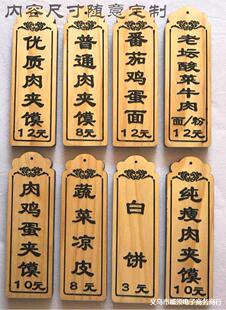 内容尺寸随意定制
优质肉夹馍
12元
普通肉夹馍
8元
番茄鸡蛋面
12元
老坛酸菜牛肉
面/粉
12元
肉鸡蛋夹馍
10元
蔬菜凉皮
8元
白饼
3元
纯瘦肉夹馍
10元
义乌市福须电子商务商行